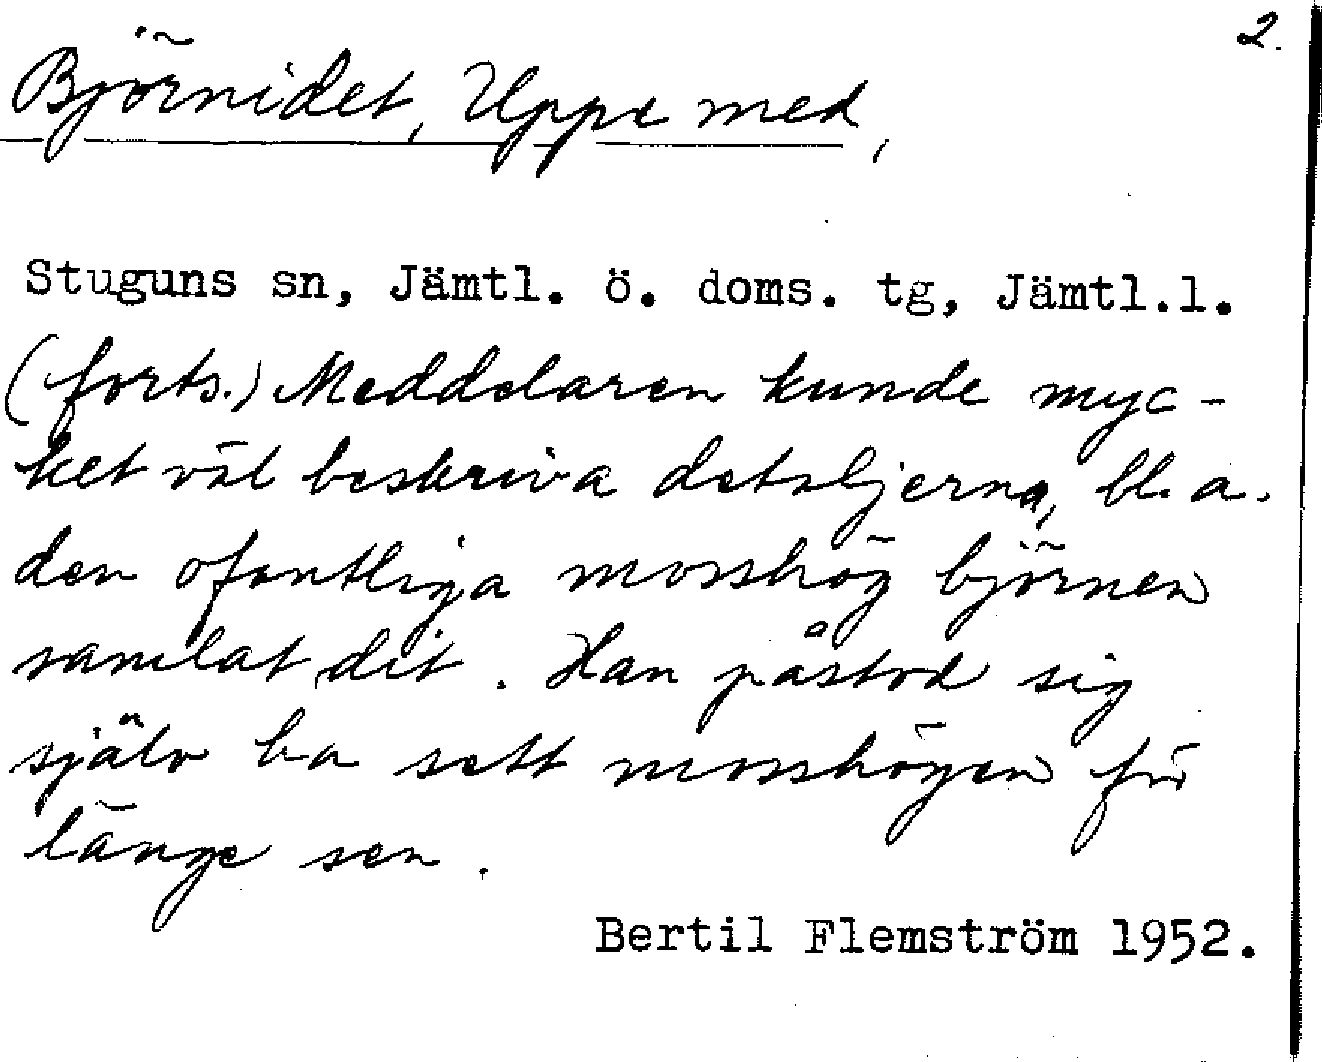 2.
Björnidet, Uppe med,
Stuguns sn, Jämtl. ö. doms. tg, Jämtl.l.
(forts.) Meddelaren kunde myc-
ket väl beskriva detaljerna, bl. a.
den ofantliga mosshög björnen
samlat dit. Han påstod sig
själv ha sett mosshögen för
länge sen.
Bertil Flemström 1952.